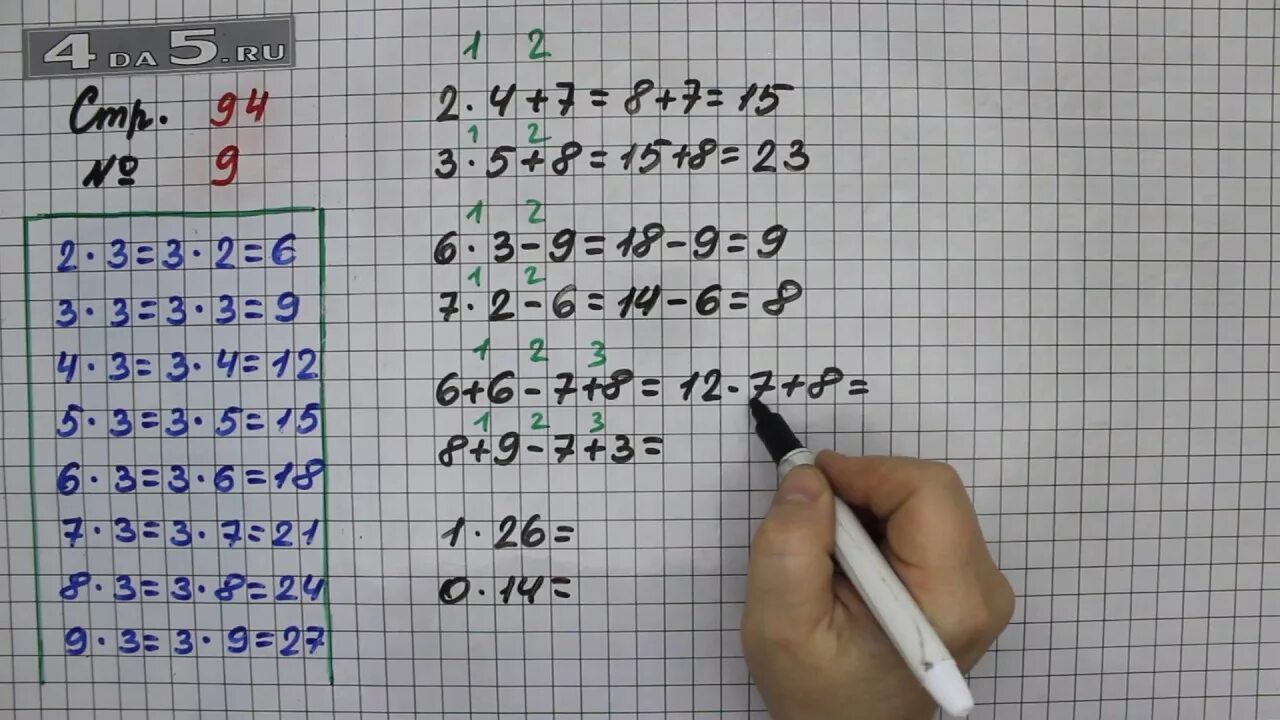 4DA5.RU
Стр. 94
№ 9
2·3=3·2=6
3·3=3·3=9
4·3=3·4=12
5·3=3·5=15
6·3=3·6=18
7·3=3·7=21
8·3=3·8=24
9·3=3·9=27
1 2
2·4+7=8+7=15
1 2
3·5+8=15+8=23
1 2
6·3-9=18-9=9
1 2
7·2-6=14-6=8
1 2 3
6+6-7+8=12-7+8=
1 2 3
8+9-7+3=
1·26=
0·14=